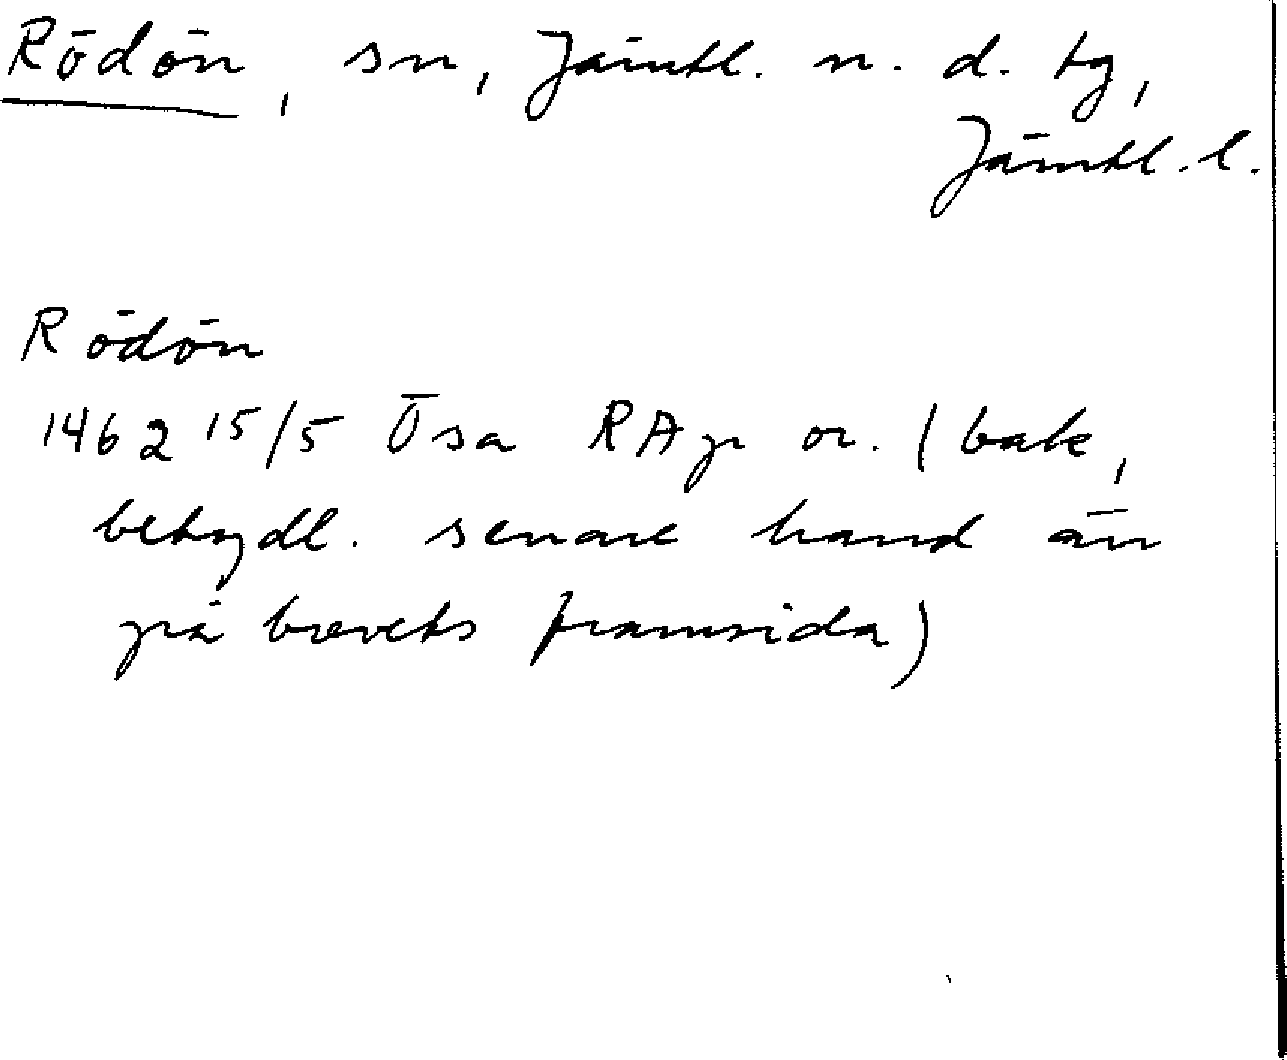 Rödön, sn, Jämtl. n. d. tg,
Jämtl. l.
Rödön
1462 15/5 Ösa RAp or. (bak,
betydl. senare hand än
på brevets framsida)